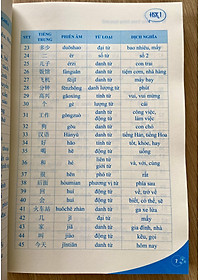 HSK1
STT TIẾNG TRUNG PHIÊN ÂM TỪ LOẠI DỊCH NGHĨA
23 多少 duōshao đại từ bao nhiêu, mấy
24 二 èr số từ số 2
25 儿子 érzi danh từ con trai
26 饭馆 fànguǎn danh từ tiệm cơm, nhà hàng
27 飞机 fēijī danh từ máy bay
28 分钟 fēnzhōng danh từ/lượng từ phút
29 高兴 gāoxìng tính từ vui, vui mừng
30 个 gè lượng từ cái
31 工作 gōngzuò danh từ, động từ công việc, làm việc
32 狗 gǒu danh từ con chó
33 汉语 Hànyǔ danh từ tiếng Hán, tiếng Hoa
34 好 hǎo tính từ tốt, khỏe, hay
35 喝 hē động từ uống
36 和 hé liên từ/giới từ và, với, cùng
37 很 hěn phó từ rất
38 后面 hòumian phương vị từ phía sau
39 回 huí động từ về, trở về
40 会 huì động từ biết, có thể, sẽ
41 火车站 huǒchē zhàn danh từ ga xe lửa
42 几 jǐ đại từ mấy
43 家 jiā danh từ gia đình, nhà
44 叫 jiào động từ kêu, gọi
45 今天 jīntiān danh từ hôm nay